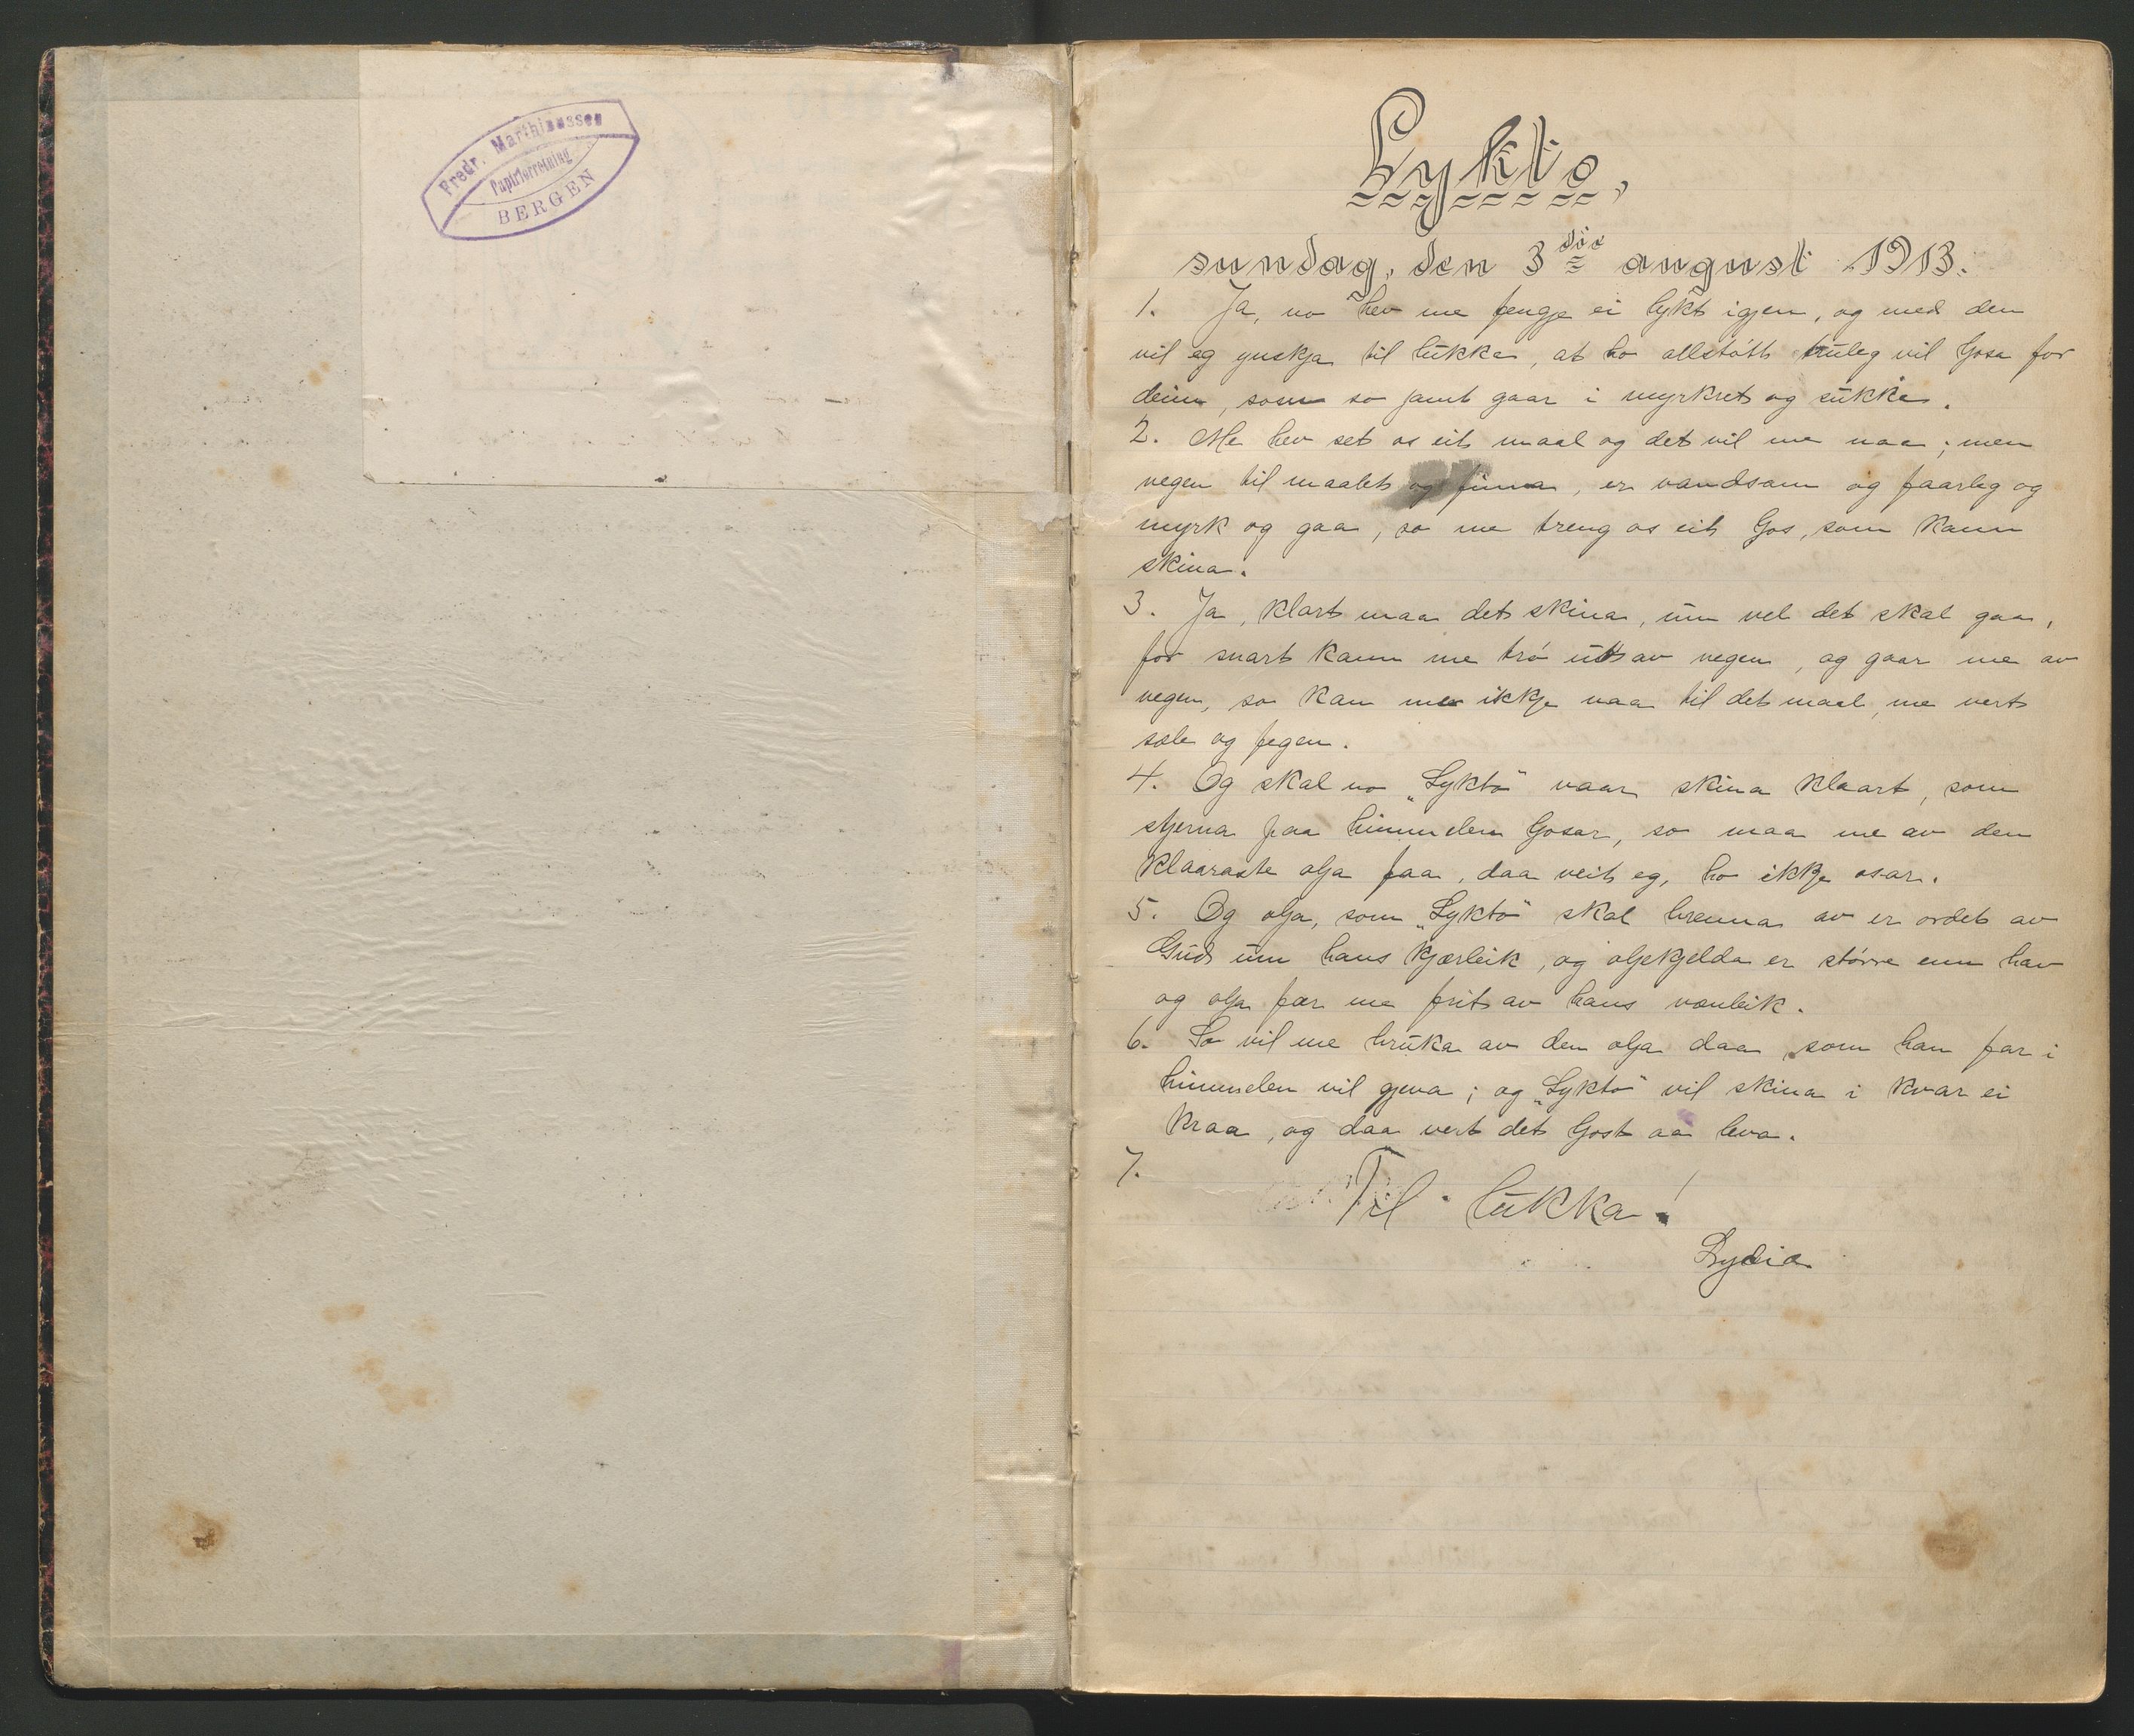 Fredr. Marthinussen
Papirforretning
BERGEN
Lykto,
sundag, den 3die august 1913.
1. Ja, no hev me fengje ei lykt igjen, og med den
vil eg ynskja til lukka, at ho allstøtt truleg vil ljosa for
deim, som so jamt gaar i myrkret og sukka.
2. Me hev set os eit maal og det vil me naa; men
vegen til maalet og finna, er vandsam og faarleg og
myrk og gaa, so me treng os eit ljos, som kann
skina.
3. Ja, klart maa det skina, um vel det skal gaa,
for snart kann me trø ut av vegen, og gaar me av
vegen, so kan me ikkje naa til det maal, me vert
sæle og fegen.
4. Og skal no „Lykto" vaar skina klaart, som
stjerna paa himmelen ljosar, so maa me av den
klaaraste olja faa, daa veit eg, ho ikkje osar.
5. Og olja, som „Lykto" skal brenna av er ordet av
Gud um hans kjærleik, og oljekjelda er større enn hav
og olja fær me frit av hans vænleik.
6. So vil me bruka av den olja daa som han far i
himmelen vil gjeva; og „Lykto" vil skina i kvar ei
kraa, og daa vert det ljost aa leva.
7.
Til lukka!
Lydia